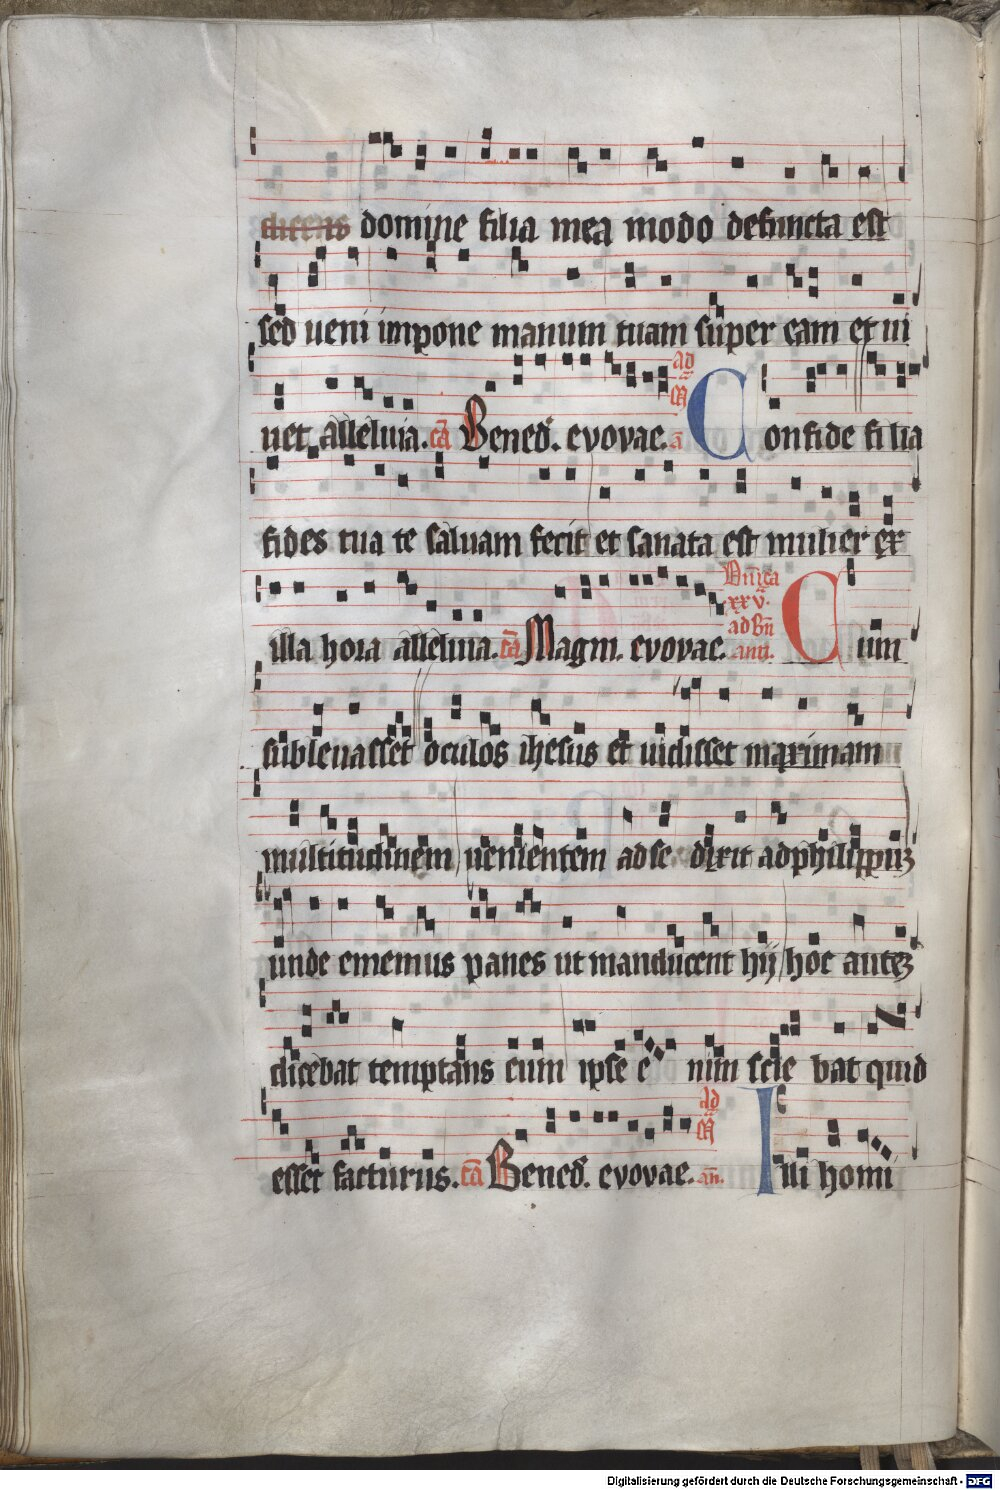 dicens domine filia mea modo defuncta est
sed ueni impone manum tuam super eam et ui
uet alleluia. ca Bened. evovae. a Ad M Confide filia
fides tua te saluam fecit et sanata est mulier ex
illa hora alleluia. ca Magni. evovae. Dnica xxv. ad Bn ant. Cum
subleuasset oculos ihesus et uidisset maximam
multitudinem uenientem ad se dixit ad philippuꝫ
unde ememus panes ut manducent hij hoc auteꝫ
dicebat temptans eum ipse e nim scie bat quid
esset facturus. ca Bened. evovae. an. Ad M Illi homi
Digitalisierung gefördert durch die Deutsche Forschungsgemeinschaft - DFG